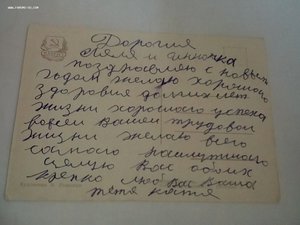 www.forums-su.com
Дорогие
Ляля и Инночка
поздравляю с новым
годом желаю хорошего
здоровия долгих лет
жизни хорошого успеха
в вашей трудовой
жизни желаю всего
самого наилучшего
целую Вас обоих
крепко Ваша
тетя Катя
Художник